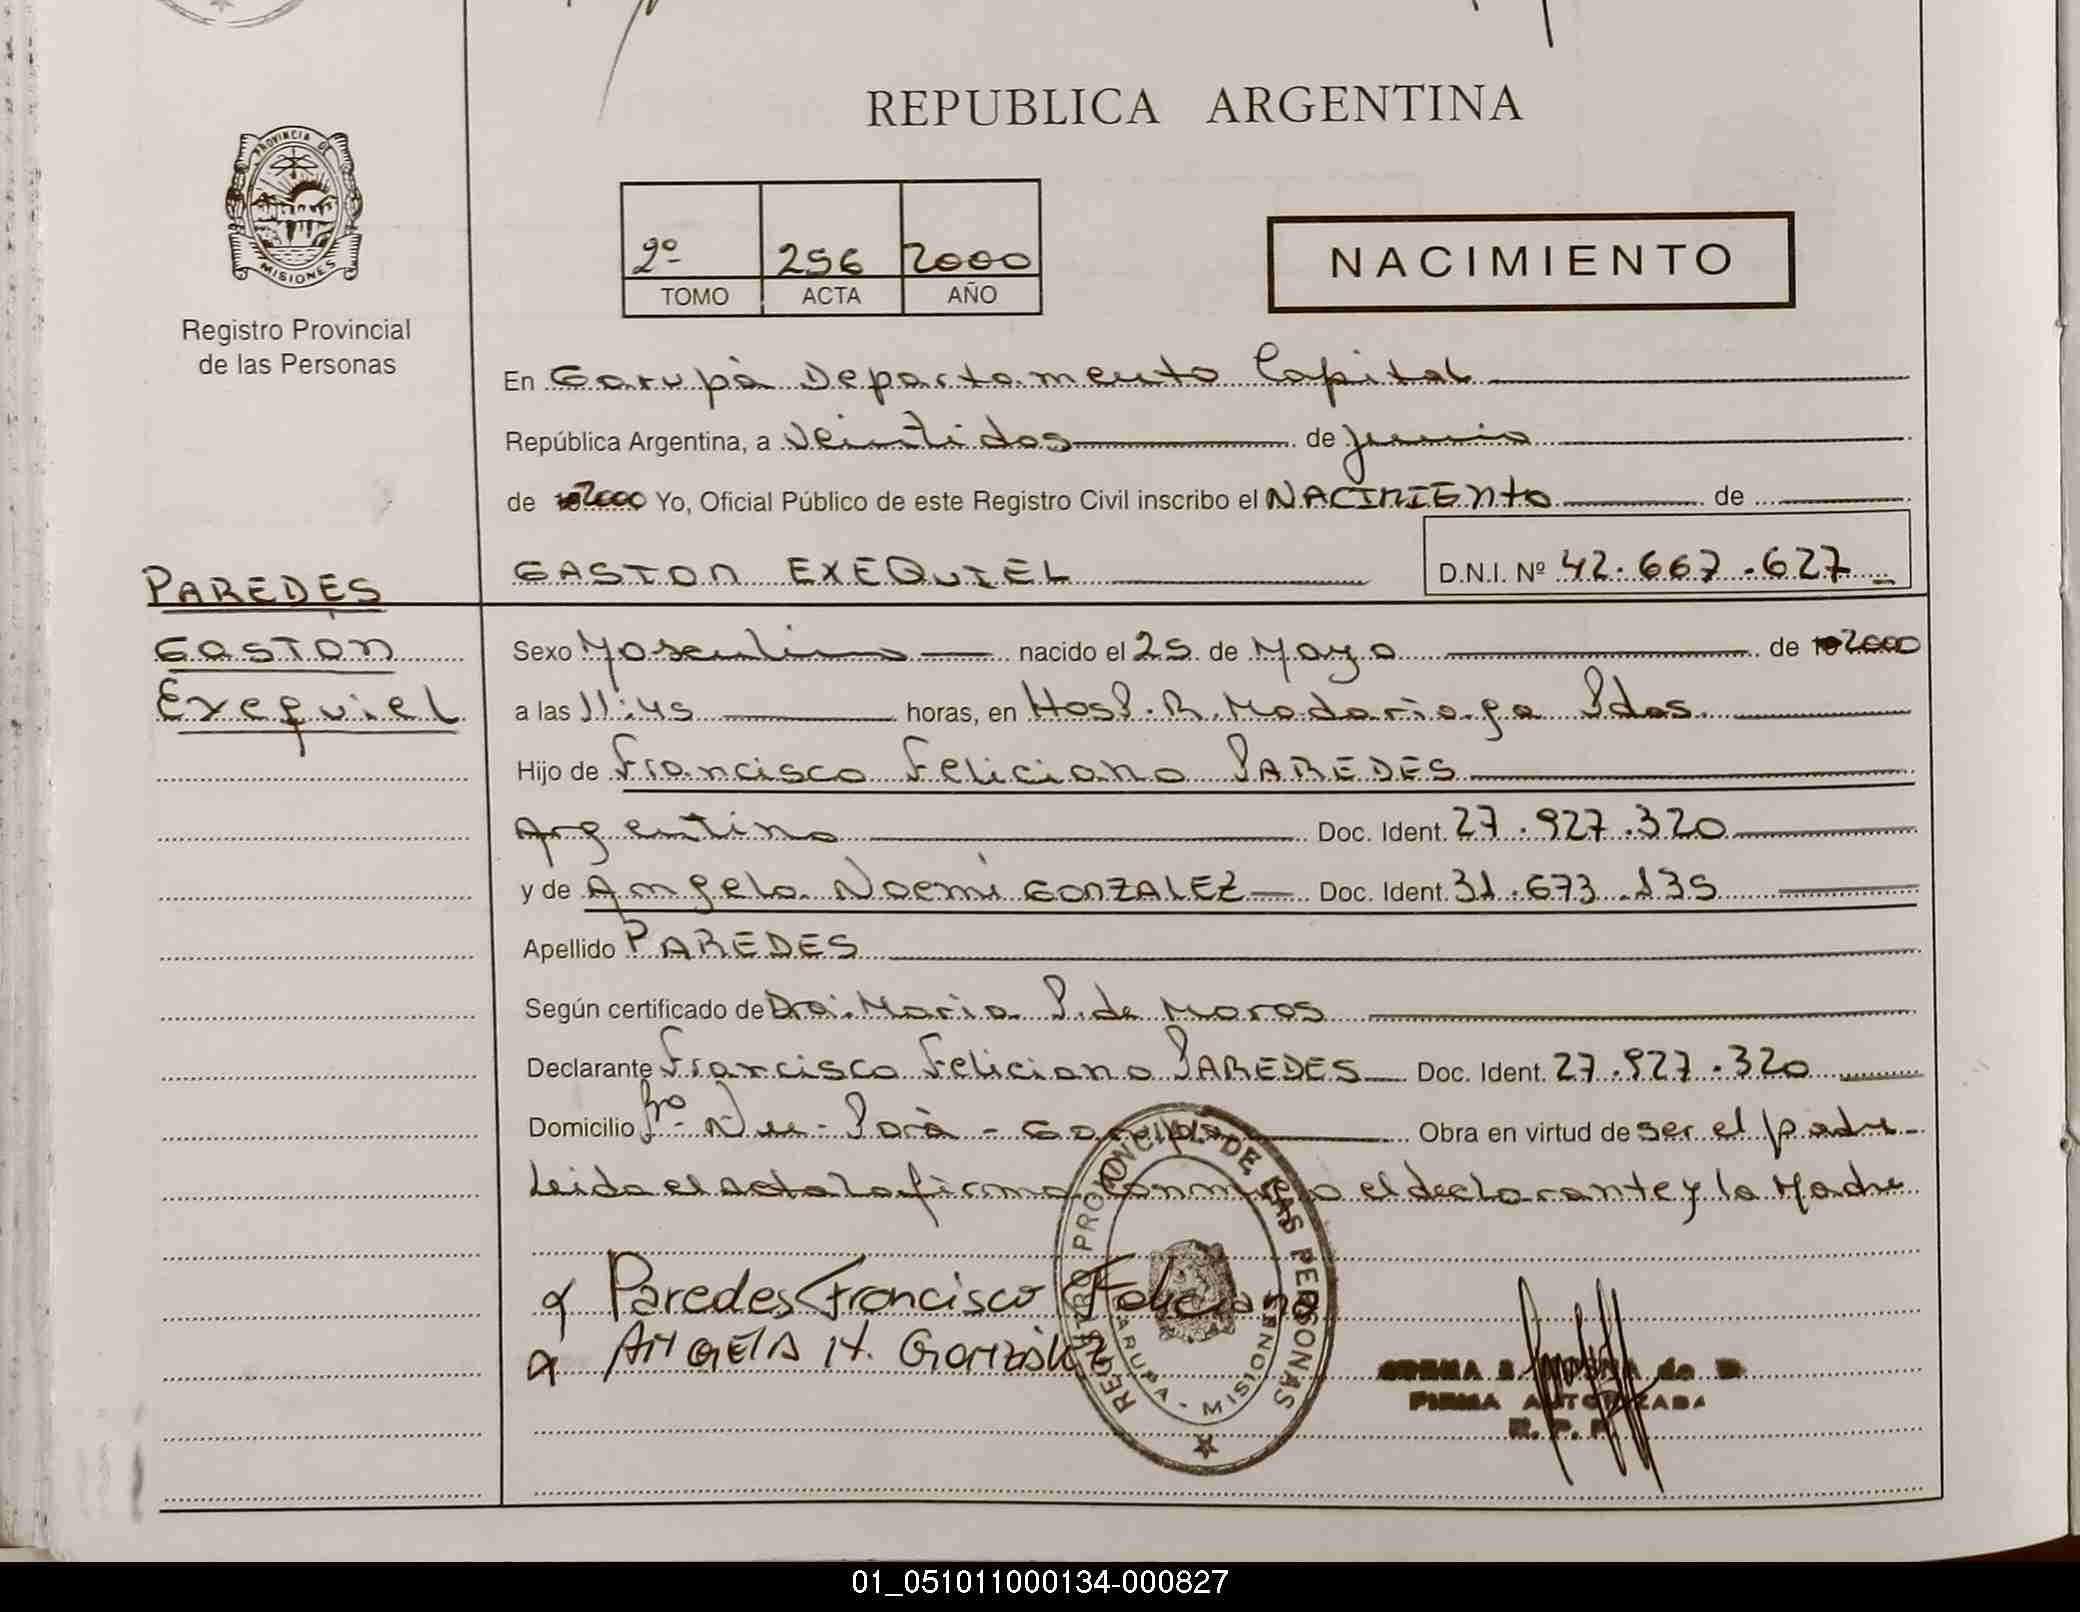 REPUBLICA ARGENTINA
PROVINCIA DE MISIONES
Registro Provincial
de las Personas
2º 256 2000
TOMO ACTA AÑO
NACIMIENTO
En Garupà Departamento Capital
República Argentina, a Veintidos de junio
de 2000 Yo, Oficial Público de este Registro Civil inscribo el NACIMIENTO de
GASTON EXEQUIEL D.N.I. Nº 42.667.627
PAREDES
GASTON
Exequiel
Sexo Masculino nacido el 25 de Mayo de 2000
a las 11:45 horas, en Hosp. R. Madariaga Pdas.
Hijo de Francisco Feliciano PAREDES
Argentino Doc. Ident. 27.927.320
y de Angela Noemi GONZALEZ Doc. Ident. 31.673.135
Apellido PAREDES
Según certificado de Dra. Maria P. de Moros
Declarante Francisco Feliciano PAREDES Doc. Ident. 27.927.320
Domicilio Bº Ñu-Porà - Garupà Obra en virtud de ser el padre
Leida el acta la firma conmigo el declarante y la Madre
Paredes Francisco Feliciano
ANGELA N. GONZALEZ
REGISTRO PROVINCIAL DE LAS PERSONAS
GARUPA - MISIONES
FIRMA AUTORIZADA
R. P. P.
01_051011000134-000827